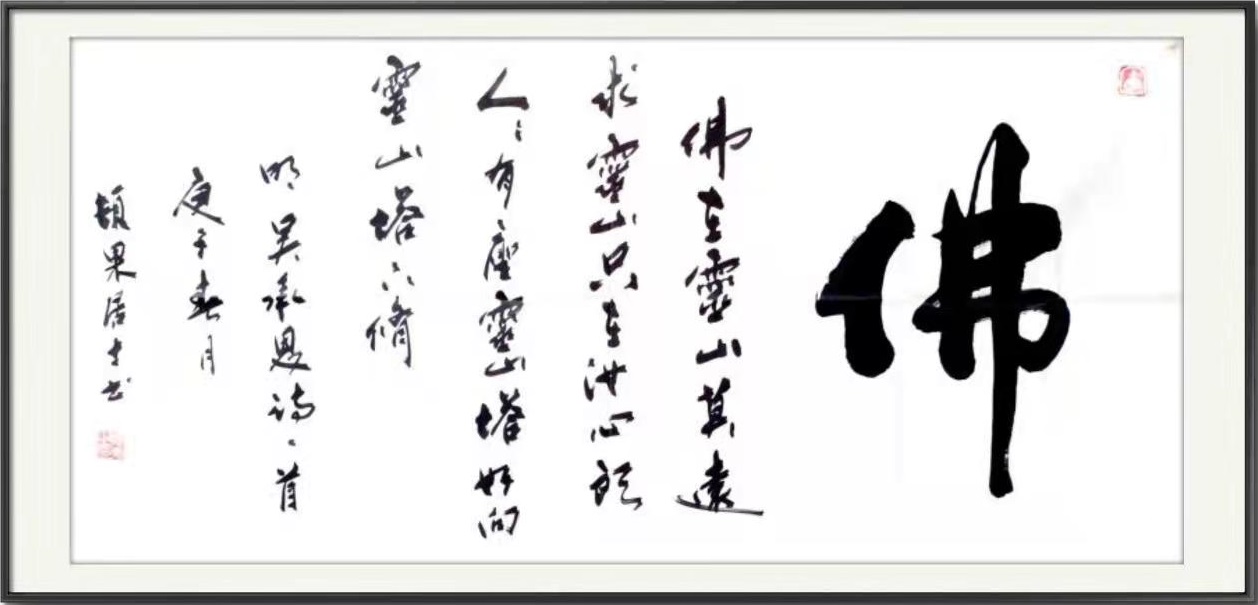 佛
佛在靈山莫遠
求靈山只在汝心頭
人々有座靈山塔好向
靈山塔下脩
明吳承恩詩一首
庚子春月
果居士书